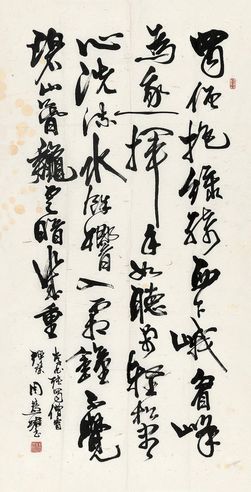 蜀僧抱綠綺西下峨眉峰
為我一揮手如聽萬壑松客
心洗流水餘響入霜鐘不覺
碧山暮龝雲暗幾重
李白聽蜀僧濬
彈琴 周慧珺書